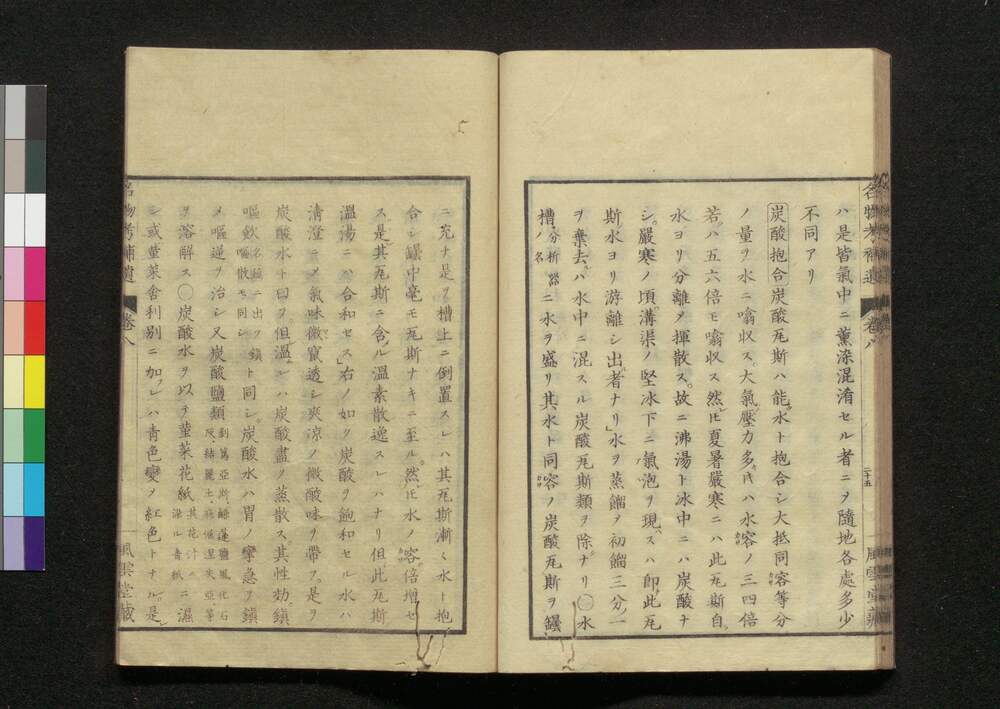 名物考補遺 巻八 二十五 風雲堂藏
ハ是皆氣中ニ薫染混淆セル者ニ乄隨地各處多少
不同アリ
炭酸抱合 炭酸瓦斯ハ能水ト抱合シ大抵同容等分
ノ量ヲ水ニ噏収ス大氣壓力多キ片ハ水容ノ三四倍
若ハ五六倍モ噏収ス然𪜈夏暑嚴寒ニハ此瓦斯自
水ヨリ分離乄揮散ス故ニ沸湯ト氷中ニハ炭酸ナ
シ嚴寒ノ頃溝渠ノ堅氷下ニ氣泡ヲ現スハ即此瓦
斯水ヨリ游離シ出者ナリ水ヲ蒸餾乄初餾三分一
ヲ棄去ハ水中ニ混スル炭酸瓦斯類ヲ除ナリ○水
槽分析器ノ名ニ水ヲ盛リ其水ト同容ノ炭酸瓦斯ヲ罎
ニ充テ是ヲ槽上ニ倒置スレハ其瓦斯漸々水ト抱
合シ罎中毫モ瓦斯ナキニ至ル然𪜈水ノ容倍増セ
ス是其瓦斯ニ含ル温素散逸スレハナリ但此瓦斯
温湯ニハ合和セス右ノ如ク炭酸ヲ飽和セル水ハ
清澄ニ乄氣味微竄透シ爽涼ノ微酸味ヲ帶フ是ヲ
炭酸水ト曰フ但温レハ炭酸盡ク蒸散ス其性効鎮
嘔飲名題ニ出ツ鎮嘔散モ同シト同シ炭酸水ハ胃ノ攣急ヲ鎮
メ嘔逆ヲ治シ又炭酸鹽類
ヲ溶解ス○炭酸水ヲ以テ菫菜花紙其花汁ニ染ル青紙ニ濕
シ或菫菜舎利別ニ加フレハ青色變乄紅色トナル是
名物考補遺 巻八 風雲堂藏